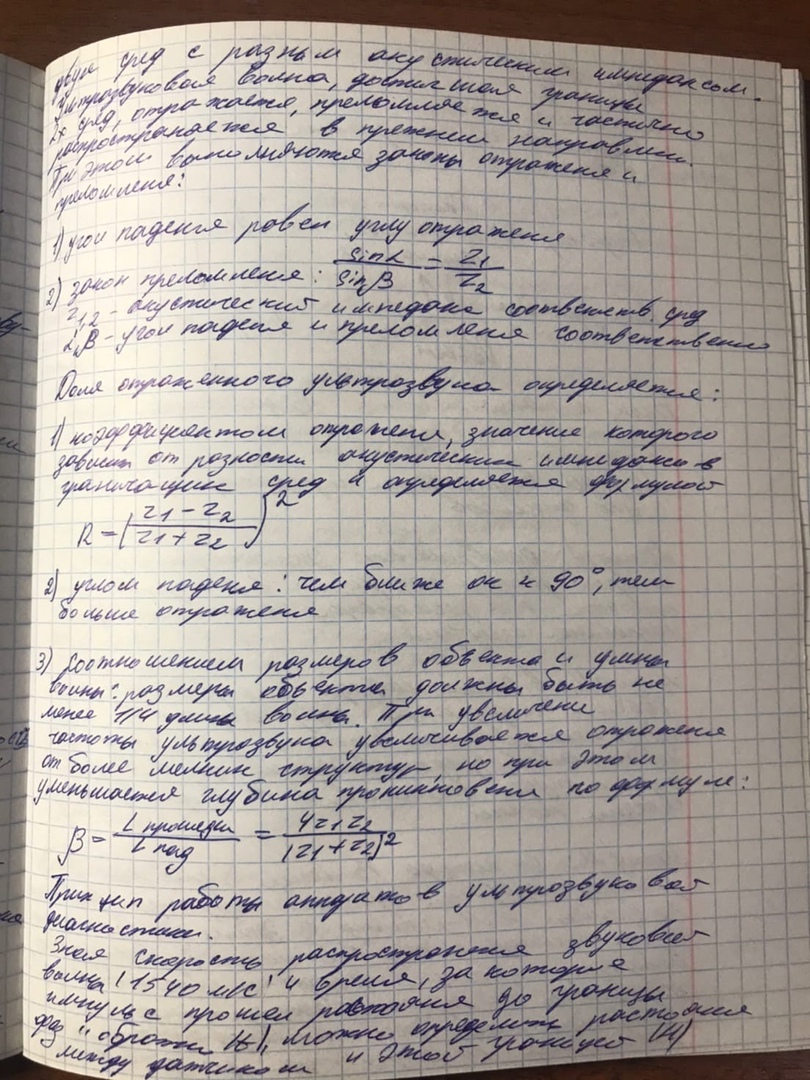 двух сред с разным акустическим импедансом.
Ультразвуковая волна, достигшая границы
2х сред, отражается, преломляется и частично
распространяется в прежнем направлен.
При этом выполняются законы отражения и
преломленя:
1) угол паденя равен углу отраженя
2) закон преломленя: sinα/sinβ = Z1/Z2
Z1,2 - акустический импеданс соответств. сред
α,β - угол паденя и преломленя соответственно
Доля отраженного ультразвука определяется:
1) коэффициентом отражени, значение которого
зависит от разности акустических импедансов
граничащих сред и определяется формулой
R = (Z1 - Z2 / Z1 + Z2)²
2) углом паденя: чем ближе он к 90°, тем
больше отраженя
3) соотношением размеров объекта и длины
волны: размеры объекта должны быть не
менее 1/4 длины волны. При увеличени
частоты ультразвука увеличивается отраженя
от более мелких структур, но при этом
уменьшается глубина проникновени по формуле:
β = L прошедш / L пад = 4Z1Z2 / (Z1+Z2)²
Принцип работы аппаратов ультразвуковой
диагностики.
Зная скорость распространеня звуковой
волны (1540 м/с) и время, за которое
импульс прошел расстояния до границы
фаз и обратно (t), можно определить расстояния
между датчиком и этой границей (H)